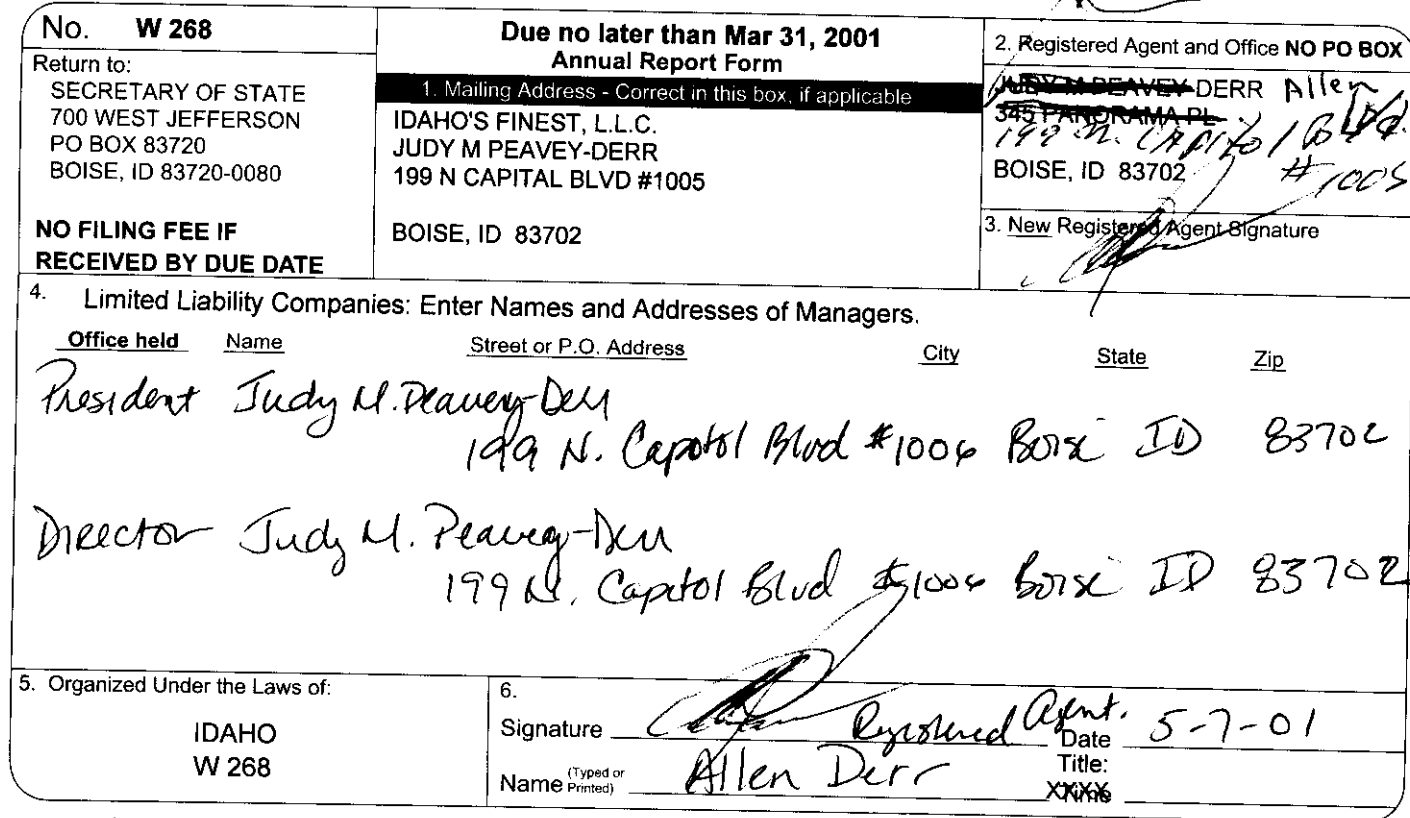 No. W 268
Return to:
SECRETARY OF STATE
700 WEST JEFFERSON
PO BOX 83720
BOISE, ID 83720-0080
NO FILING FEE IF
RECEIVED BY DUE DATE
Due no later than Mar 31, 2001
Annual Report Form
1. Mailing Address - Correct in this box, if applicable
IDAHO'S FINEST, L.L.C.
JUDY M PEAVEY-DERR
199 N CAPITAL BLVD #1005
BOISE, ID 83702
2. Registered Agent and Office NO PO BOX
JUDY M PEAVEY-DERR Allen
345 PANORAMA PL
199 N. CAPitol Blvd.
BOISE, ID 83702 #1005
3. New Registered Agent Signature
4. Limited Liability Companies: Enter Names and Addresses of Managers.
Office held Name Street or P.O. Address City State Zip
President Judy M. Peavey-Derr
199 N. Capotol Blvd #1006 Boise ID 83702
Director Judy M. Peavey-Derr
199 N. Capitol Blvd #1006 Boise ID 83702
5. Organized Under the Laws of:
IDAHO
W 268
6.
Signature Registered Agent. Date 5-7-01
Name (Typed or Printed) Allen Derr Title: